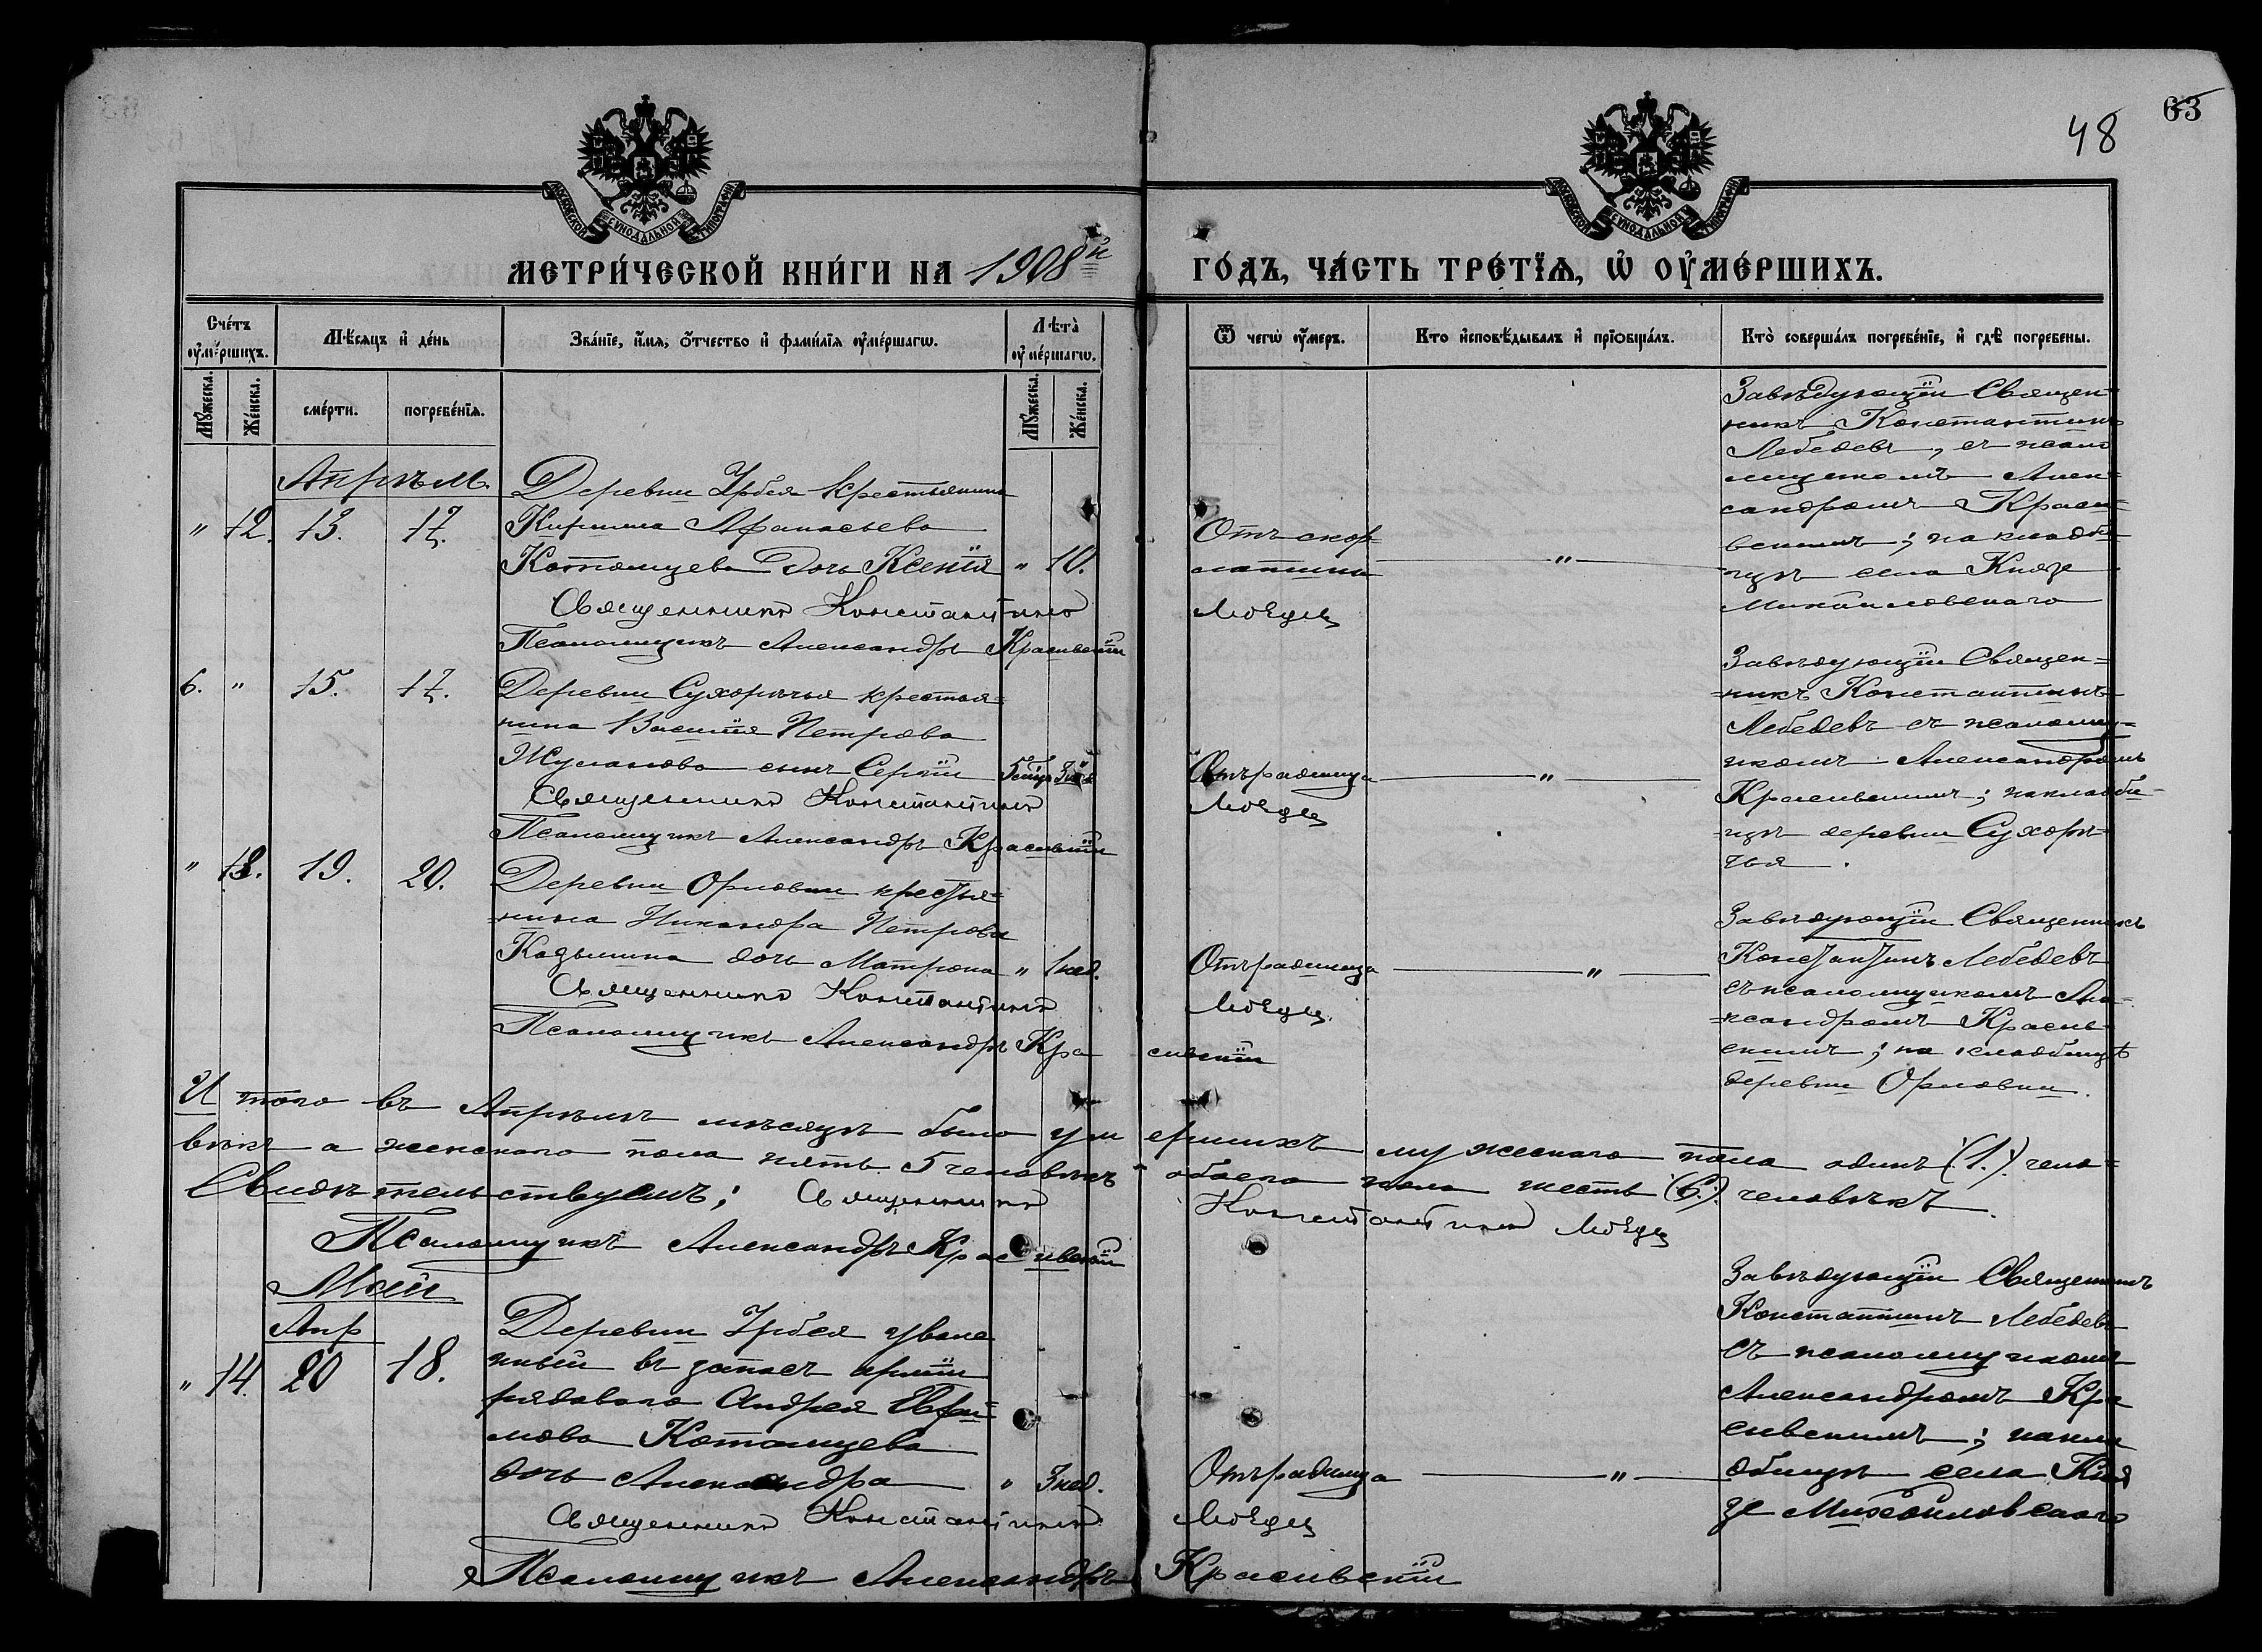 48
63
МОСКОВСКОЙ СУНОДАЛЬНОЙ ТИПОГРАФІИ
МОСКОВСКОЙ СУНОДАЛЬНОЙ ТИПОГРАФІИ
МЕТРИ́ЧЕСКОЙ КНИ́ГИ НА 1908й
ГО́ДЪ, ЧА́СТЬ ТРЕ́ТЇѦ, Ѡ҆ ОУ҆МЕ́РШИХЪ.
Сче́тъ оу҆ме́ршихъ.
Мѣ́сяцъ и҆ де́нь
Зва́нїе, и҆́мѧ, ѻ҆́тчество и҆ фами́лїѧ оу҆ме́ршагѡ.
Лѣ́та оу҆ме́ршагѡ.
Мꙋ́жеска. Же́нска.
сме́рти. погребе́нїѧ.
Мꙋ́жеска. Же́нска.
Ѿ чегѡ̀ оу҆́меръ.
Кто̀ и҆сповѣ́дывалъ и҆ прїѡбща́лъ.
Кто̀ соверша́лъ погребе́нїе, и҆ гдѣ̀ погребены̀.
Апрѣль.
" 12. 13. 17.
Деревни Урбея крестьянина
Кирилла Афанасьева
Котомцева дочь Ксенія " 10.
Священникъ Константинъ
Псаломщикъ Александръ Красивскій
Отъ скор
латины
"
Лебедев
Завѣдующій Священ-
никъ Константинъ
Лебедевъ, съ псало
мщикомъ Алек-
сандромъ Краси-
вскимъ; на кладби
щѣ села Князе
Михайловскаго
6. " 15. 17.
Деревни Сухорѣчья крестья-
нина Василія Петрова
Жуланова сынъ Сергій
Священникъ Константинъ
Псаломщикъ Александръ Красивскій
Отъ родимца
"
Лебедев
Завѣдующій Священ=
=никъ Константинъ
Лебедевъ съ псаломщи=
комъ Александромъ
Красивскимъ; на кладби-
=щѣ деревни Сухорѣ-
чья.
" 13. 19. 20.
Деревни Орловки крестья=
=нина Никандра Петрова
Казьмина дочь Матрона " 1 нед.
Священникъ Константинъ
Псаломщикъ Александръ Красивскій
Отъ родимца
"
Лебедев
Завѣдующій Священникъ
Константинъ Лебедевъ
съ псаломщикомъ Але-
=ксандромъ Красив-
скимъ; на кладбищѣ
деревни Орловки.
Итого въ Апрѣлѣ мѣсяцѣ было умершихъ мужескаго пола одинъ (1.) чело=
вѣкъ а женскаго пола пять 5 человѣкъ обоего пола шесть (6.) человѣкъ.
Свидѣтельствуемъ; Священникъ Константинъ Лебедев
Псаломщикъ Александръ Красивскій
Май
Апр
" 14. 20 18.
Деревни Урбея уволе
нный въ запасъ арміи
рядоваго Андрея Евфи-
мова Котомцева
дочь Александра " 3 нед.
Священникъ Константинъ
Псаломщикъ Александръ Красивскій
Отъ родимца
"
Лебедев
Завѣдующій Священникъ
Константинъ Лебедевъ
съ псаломщикомъ
Александромъ Кра
сивскимъ; на кла
дбищѣ села Кня
зе Михайловскаго